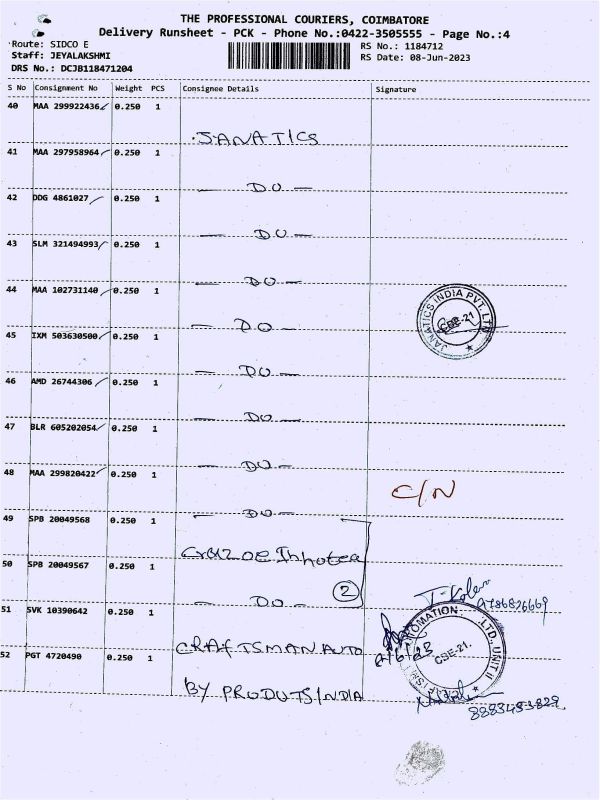 THE PROFESSIONAL COURIERS, COIMBATORE
Delivery Runsheet - PCK - Phone No.:0422-3505555 - Page No.:4
Route: SIDCO E
RS No.: 1184712
Staff: JEYALAKSHMI
RS Date: 08-Jun-2023
DRS No.: DCJB118471204
S No Consignment No Weight PCS Consignee Details Signature
40 MAA 299922436 0.250 1
JANATICS
41 MAA 297958964 0.250 1
— DO —
42 DDG 4861027 0.250 1
— DO —
43 SLM 321494993 0.250 1
— DO —
44 MAA 102731140 0.250 1
— DO —
JANATICS INDIA PVT. LTD
CBE-21
45 IXM 503630500 0.250 1
— DO —
46 AMD 26744306 0.250 1
— DO —
47 BLR 605202054 0.250 1
— DO —
48 MAA 299820422 0.250 1
— DO —
C/N
49 SPB 20049568 0.250 1
50 SPB 20049567 0.250 1
2
— DO —
51 SVK 10390642 0.250 1
CRAFTSMAN AUTO
LTD., UNIT II
CBE-21.
52 PGT 4720490 0.250 1
BY PRODUTS INDIA